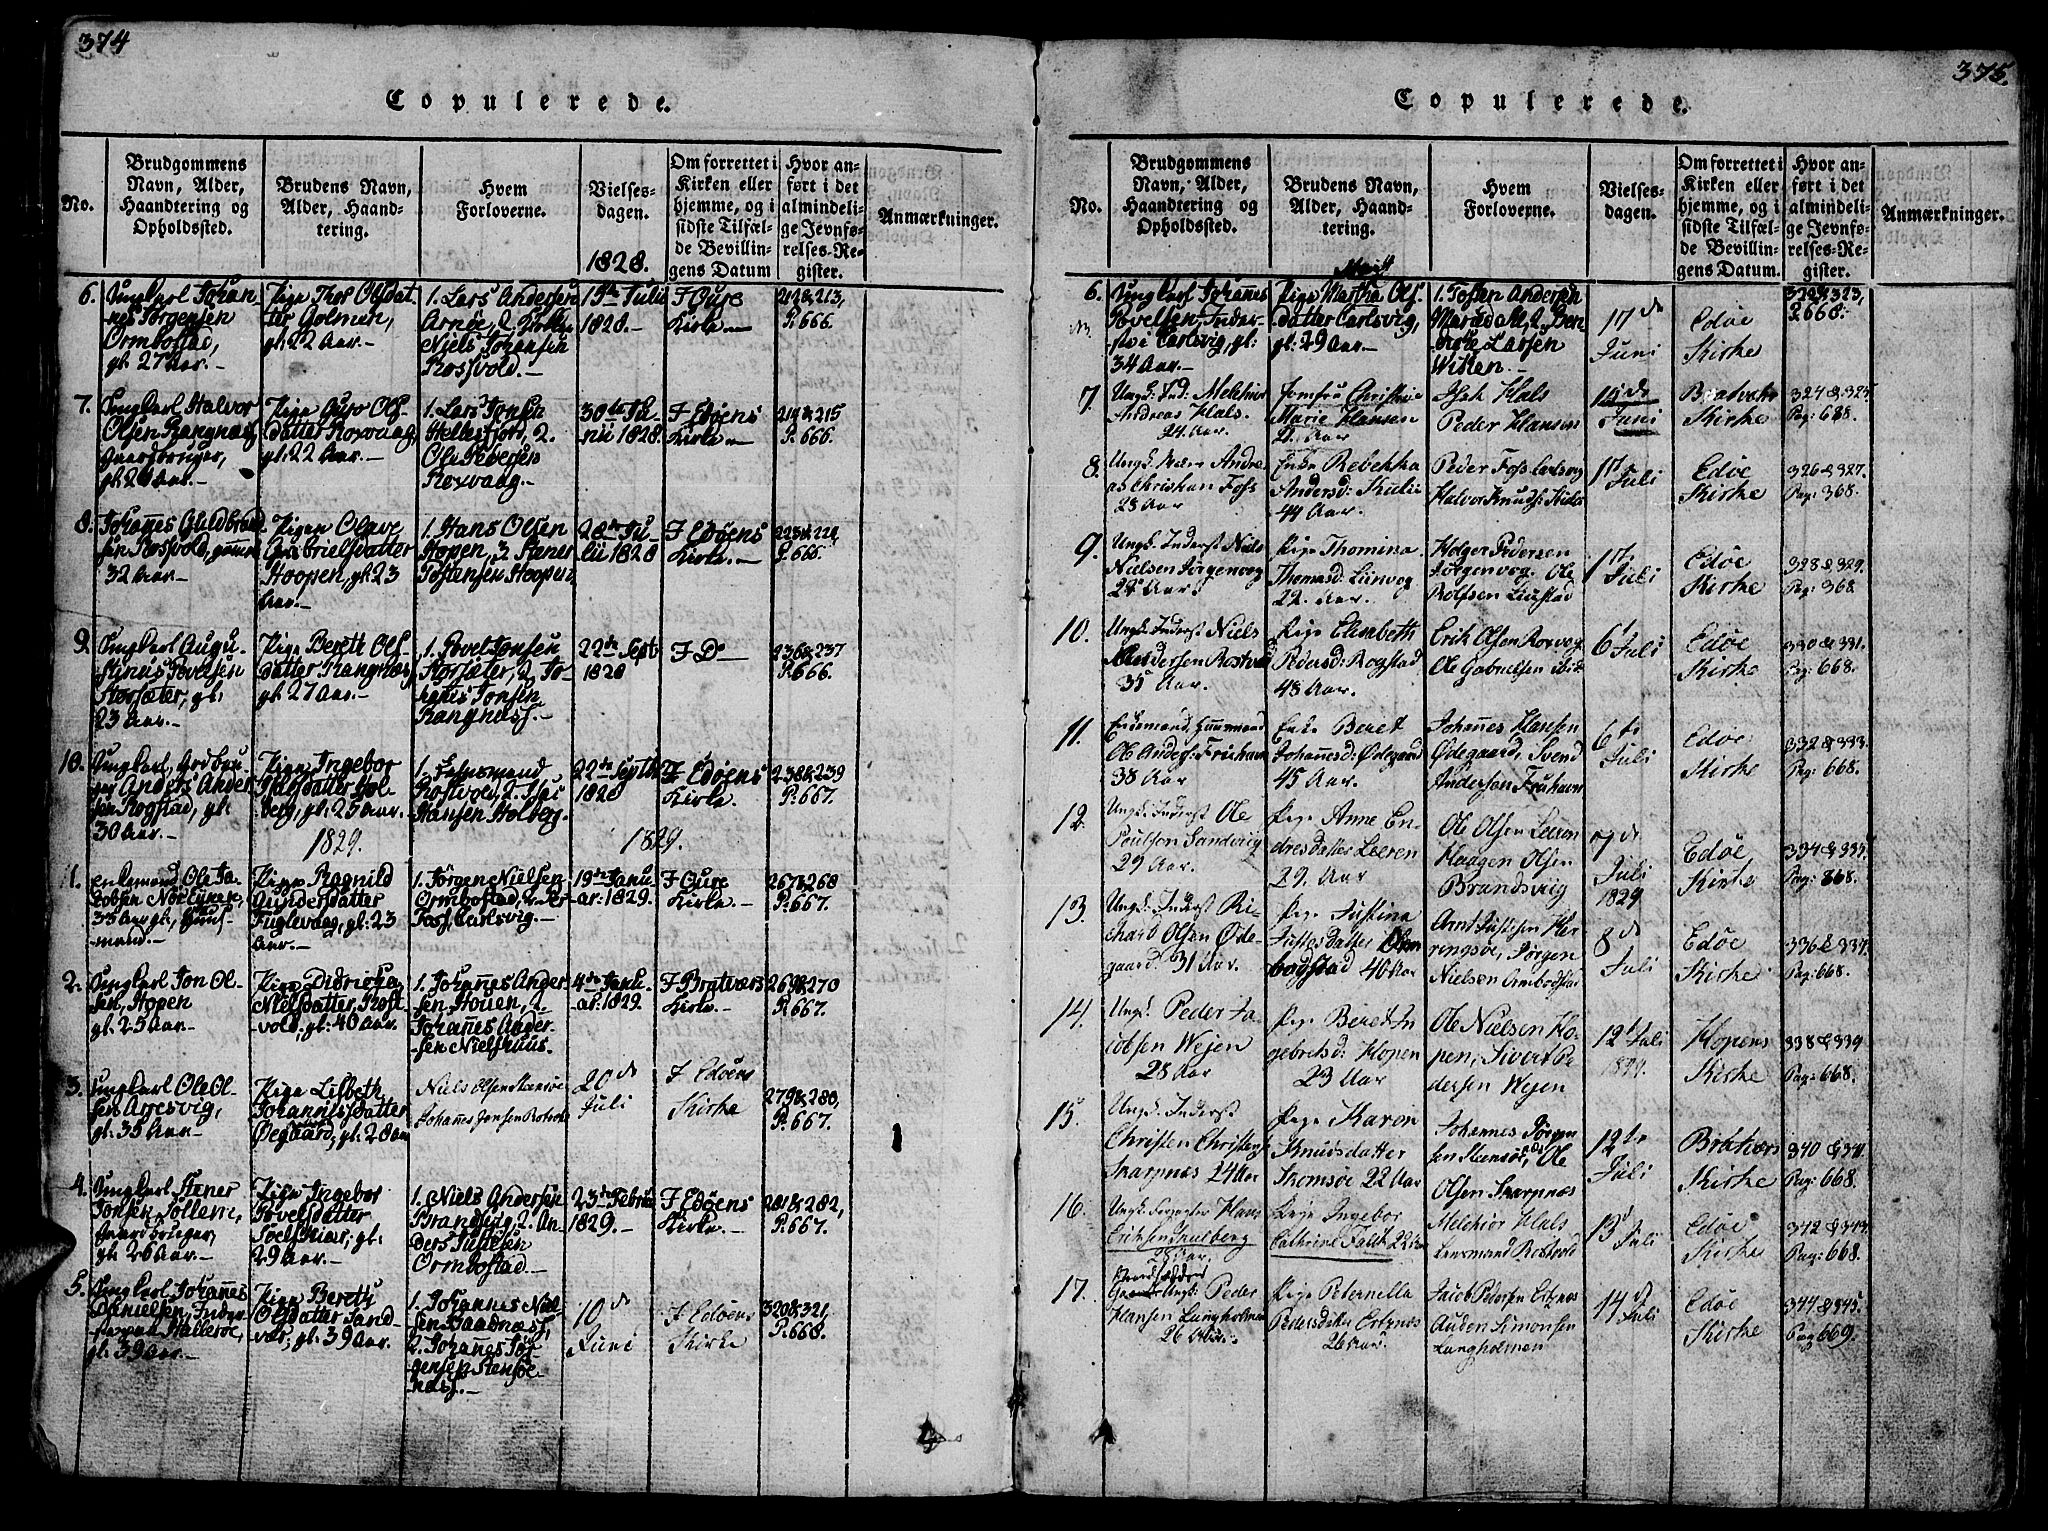 374
Copulerede.
No.
Brudgommens Navn, Alder, Haandtering og Opholdssted.
Brudens Navn, Alder, Haandtering.
Hvem Forloverne.
Vielsesdagen.
1828.
Om forrettet i Kirken eller hjemme, og i sidste Tilfælde Bevillingens Datum
Hvor anført i det almindelige Jevnførelses-Register.
Anmærkninger.
6.
Ungkarl Johannes Jørgensen
Ormbostad,
gl. 27 Aar.
Pige Olsdatter Golmen,
gl. 22 Aar.
1. Lars Andersen
Arnøe, 2.
Niels Johansen
Rossvold.
15de Julii
1828.
I Oure
Kirke
212 & 213,
P. 666.
7.
Ungkarl Halvor
Olsen Rangnæs,
Gaardbruger,
Pige Guro Olsdatter Roxvaag,
gl. 22 Aar.
1. Lars Jonsen
2.
Ole
Roxvaag.
30te Junii 1828.
I Edøens
Kirke
214 & 215
P. 666.
8.
Johannes Guldbrandsen Rosvold,
32 Aar
Pigen Olave
Gabrielsdatter
Hoopen, gl. 23
Aar.
1. Hans Olsen
Hopen, 2. Stener
Johansen Hoopen
28de Julii 1828
I Edøens
Kirke.
P. 666.
9.
Ungkarl Augustinus Povelsen
Korsæter, gl.
23 Aar.
Pige Bereth Olsdatter Rangnæs
gl. 27 Aar.
1. Povel Jonsen
Korsæter, 2. Johannes Jonsen
Rangnæss.
22de Sept
1828
I D
236 & 237
P. 666.
10.
Ungkarl,
Anders Andersen Rogstad, gl.
30 Aar.
Pigen Ingebor
Holberg, gl. 25 Aar.
1829.
1. Lehnsmand
Rostvold, 2.
Hansen Holberg.
22de Septb
1828
1829.
I Edøens
Kirke.
238 & 239
P. 667.
11.
Enkemand Ole Jakobsen
35 Aar gl., Huusmand.
Pige Ragnild
Gundersdatter
Fuglevaag, gl. 23
Aar.
1. Jørgen Nielsen
Ormbostad, 2.
Foss, Carlsvig.
19de Januar: 1829.
I Oure
Kirke.
267 & 268
P. 667.
2.
Ungkarl Jon Olsen, Hopen
gl. 25 Aar.
Pige Didricha
Nielsdatter, Rostvold, gl. 40 Aar.
1. Johannes Andersen, Houen, 2.
Johannes Andersen Nielshuus.
4de Januar: 1829.
I Bratværs
Kirke.
269 & 270
P. 667.
3.
Ungkarl Ole Olsen Arresvig,
gl. 35 Aar.
Pige Lisbeth
Johannisdatter
Øegaard, gl. 28 Aar
Niels Olsen
Johannes Jonsen
20de
Juli
I Edøens
Kirke
279 & 280,
P. 667.
4.
Ungkarl Stener
Jonsen Sollem,
Gaardbruger,
gl. 26 Aar.
Pige Ingebor
Povelsdatter
gl.
29 Aar.
1. Niels Andersen
Brandsvig, 2. Anders Justesen
Ormbostad.
23de Februar
1829.
I Edøens
Kirke.
281 & 282,
P. 667.
5.
Ungkarl Johannes
Danielsen,
gl. 39 Aar.
Pige Bereth
Olsdatter Sandvær, gl. 39 Aar.
1. Johannes Nielsen Baadnæss,
2. Johannes Jørgensen Stensøenæss.
10de
Juni
I Edøens
Kirke
320 & 321,
P. 668.
375.
Copulerede.
No.
Brudgommens Navn, Alder, Haandtering og Opholdssted.
Brudens Navn, Alder, Haandtering.
Hvem Forloverne.
Vielsesdagen.
Om forrettet i Kirken eller hjemme, og i sidste Tilfælde Bevillingens Datum.
Hvor anført i det almindelige Jevnførelses-Register.
Anmærkninger.
6.
Ungkarl Johannes
Povelsen, Inderst i Carlsvig, gl:
34 Aar.
Marit
Pige Martha Olsdatter Carlsvig,
gl: 29 Aar.
1. Tosten Andersen
2.
Larsen
Witsen.
17de
Juni
Edøe
Kirke
322 & 323,
P. 668.
7.
Melchior
Andreas Hals.
24 Aar.
Jomfru Christine
Marie Hansen
22 Aar
Hals
Peder Hansen
Juni
Kirke
324 & 325
Pag: 668.
8.
Andreas Christian Foss
28 Aar
Enke Rebekka
Andersd:
44 Aar.
Peder Foss Carlsvog
Halvor Knuds:
1ste Juli
Edøe
Kirke
326 & 327.
Pag: 368.
9.
Ungk. Inderst Niels
Nielsen Jørgenvog
25 Aar.
Pige Thomina
Thomasd:
22. Aar.
Holger Pedersen
Jørgenvog. Ole
Rolfsen
Juli
Edøe
Kirke
328 & 329.
Pag: 368
10.
Ungk. Inderst Niels
Andersen
35 Aar.
Pige Elisabeth
Pedersd: Rogstad
43 Aar.
Erik Olsen Roxvog
Ole Gabrielsen
6te Juli
Edøe
Kirke
330 & 331.
Pag: 668.
11.
Enkemand, Huusmand
Ole Anders: Frishavn
38 Aar
Enke Beret
Johannesd: Ødegaard
45 Aar.
Johannes Hansen
Ødegaard, Svend
Andersen
6te
Juli
Edøe
Kirke
332 & 333.
Pag: 668.
12.
Ungk. Inderst Ole
Poulsen Sandvig
29 Aar.
Pige Anne Endresdatter Leeren
29. Aar
Ole Olsen
Haagen Olsen
Brandsvig
7de
Juli
1829
Edøe
Kirke
334 & 335.
Pag: 368.
13.
Ungk. Inderst Richard Olsen Ødegaard. 31 Aar.
Pige Justina
Justesdatter
40 Aar
Arnt Justesen Herringsøe, Jørgen
Nielsen Ormbogstad
8de
Juli
Edøe
Kirke
336 & 337.
Pag: 668.
14.
Ungk. Peder Jacobsen Wejen
28 Aar
Pige Beret Ingebretsd: Hopen
23 Aar
Ole Nielsen Hopen, Sivert Pedersen Wejen
12te Juli
1829.
Hopens
Kirke
338 & 339
Pag: 668.
15.
Ungk. Inderst
Christen Christens:
Skarpnæs 24 Aar
Pige Karen
Knudsdatter
22 Aar
Johannes Jørgensen Stensøe, Ole
Olsen Skarpnæs
12te
Juli
Bratværs
Kirke
340 & 341.
Pag: 668.
16.
Hans
Erichsen
28 Aar.
Pige Ingebor
Cathrine Falck 22 Aar
Melchior Hals
Lensmand Rostvold
13de
Juli
Edøe
Kirke
342 & 343.
Pag: 668.
17.
Ungk. Peder
Hansen Langholmen
26 Aar.
Pige Peternella
Pedersdatter
26 Aar.
Jacob Pedersen
Auden Simonsen
Langholmen
14de
Juli
Edøe
Kirke
344 & 345.
Pag: 669.